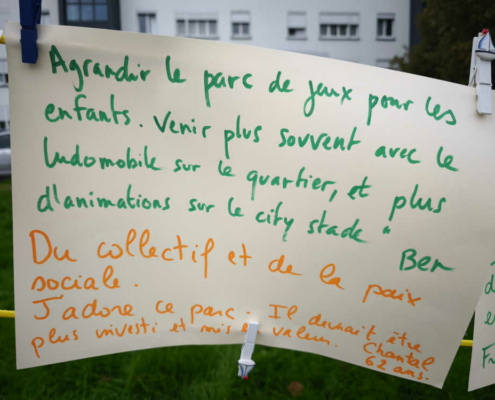 Agrandir le parc de jeux pour les
enfants. Venir plus souvent avec le
ludomobile sur le quartier, et plus
d'animations sur le city stade"
Ber
Du collectif et de la paix
sociale.
J'adore ce parc. Il devrait être
plus investi et mis en valeur. Chantal
62 ans.